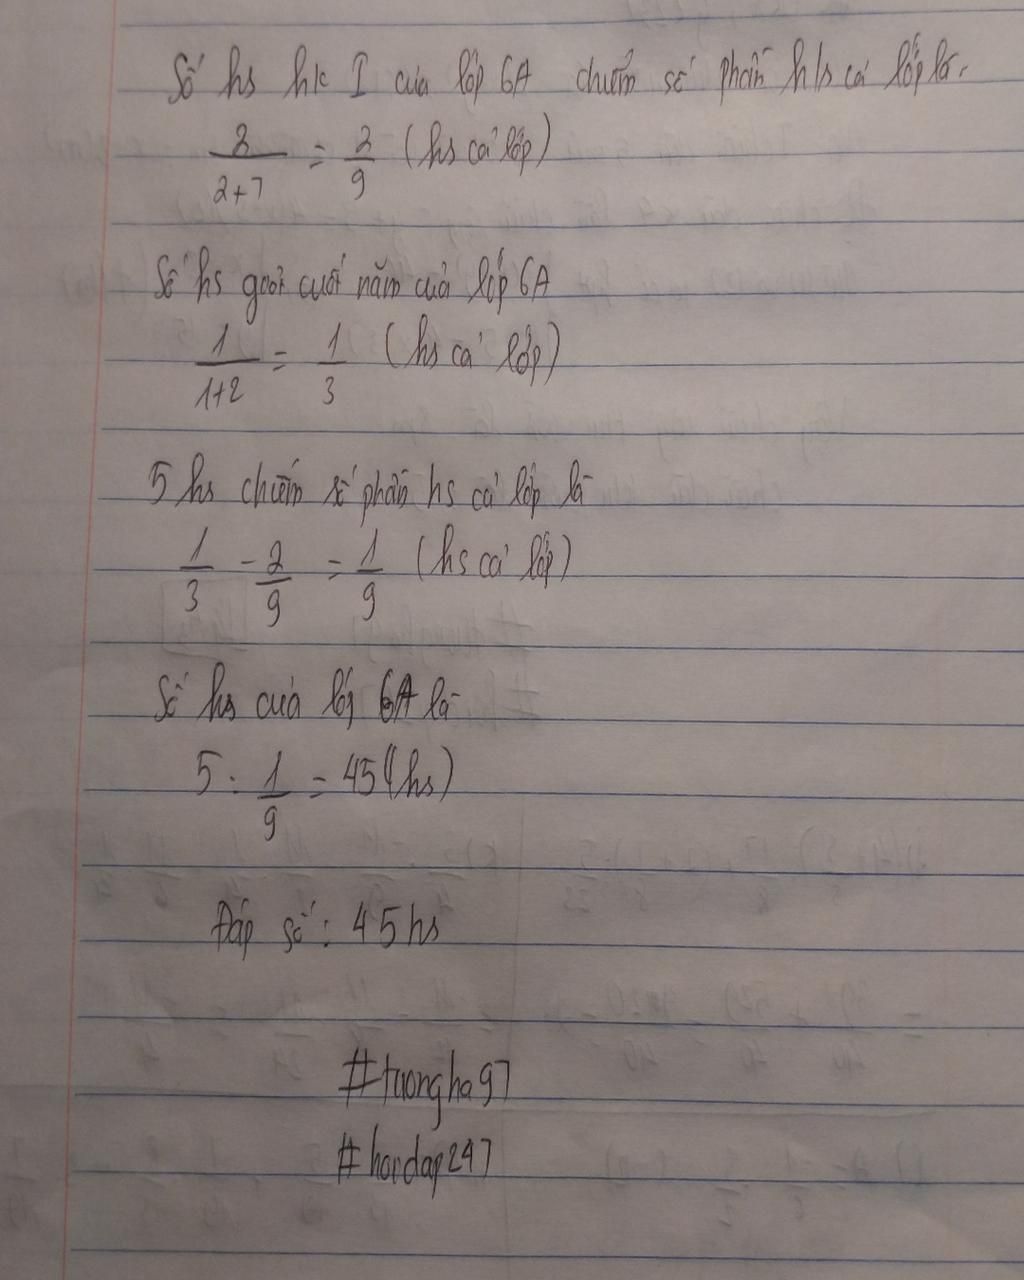 Số hs hk I của lớp 6A chiếm số phần hs cả lớp là.
2/(2+7) = 2/9 (hs cả lớp)
Số hs giỏi cuối năm của lớp 6A
1/(1+2) = 1/3 (hs cả lớp)
5 hs chiếm số phần hs cả lớp là
1/3 - 2/9 = 1/9 (hs cả lớp)
Số hs của lớp 6A là
5 : 1/9 = 45 (hs)
Đáp số : 45 hs
#tuongha97
#hoidap247